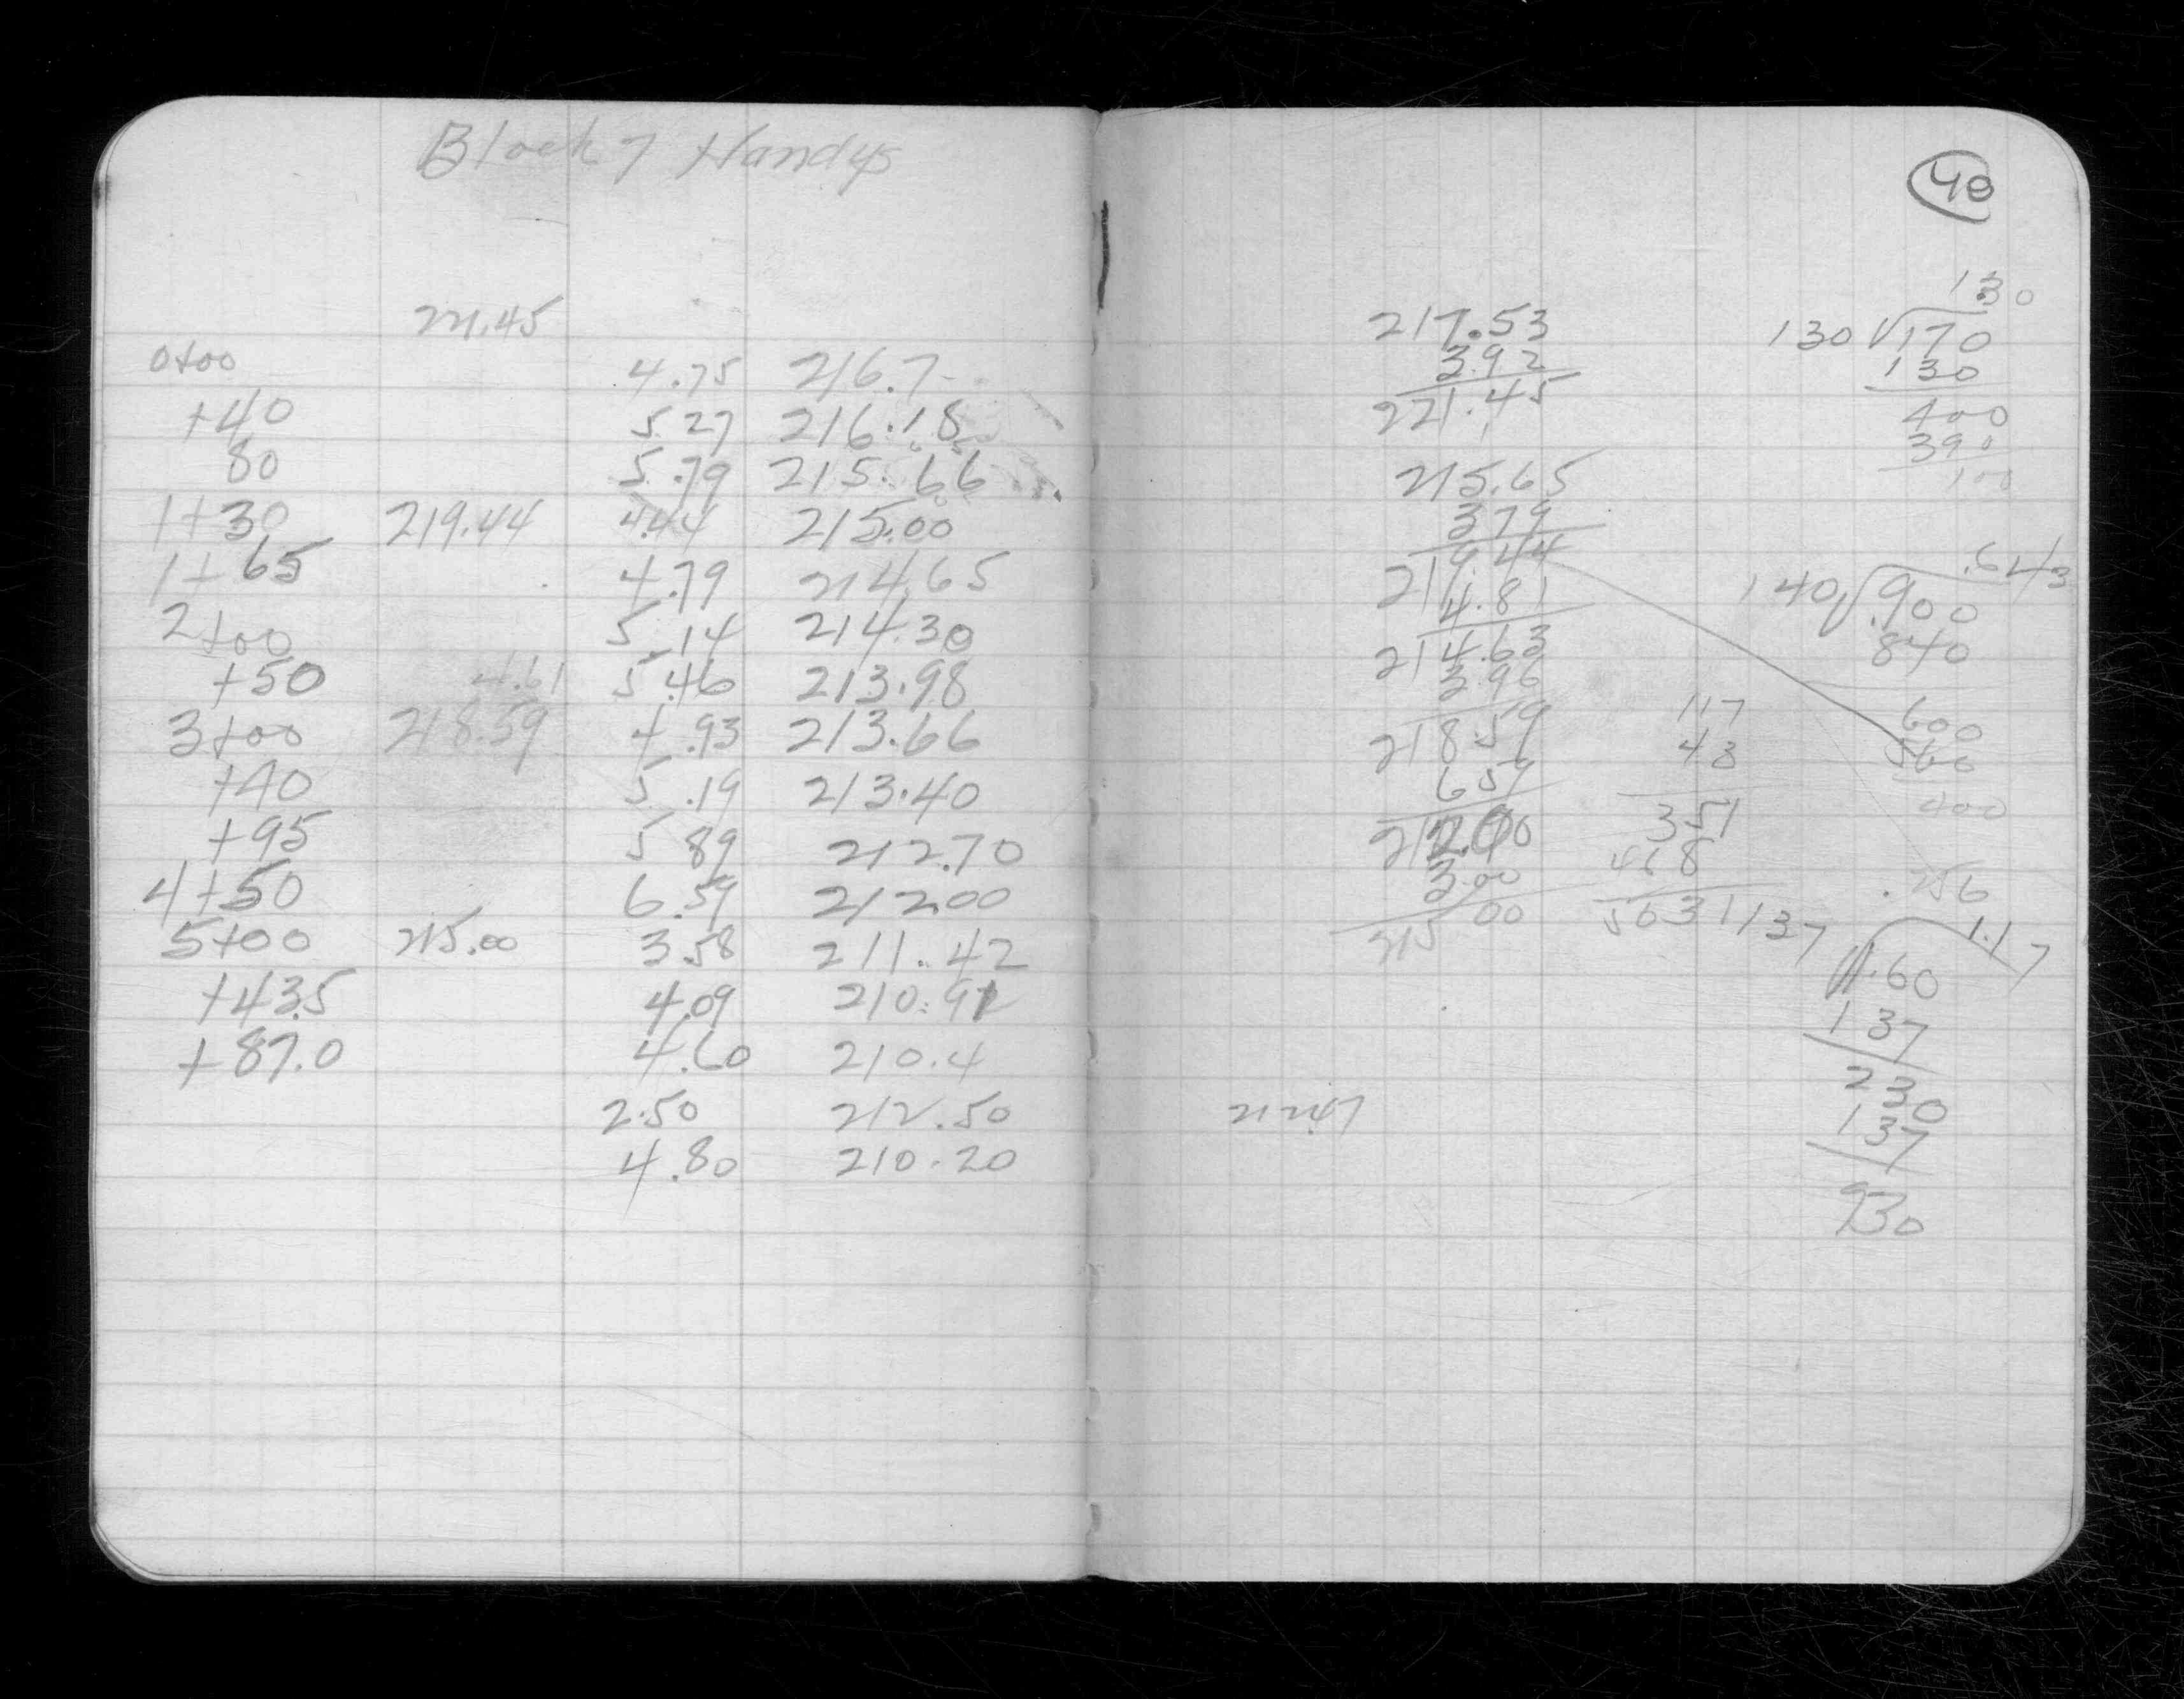 Block 7 Handys
221.45
0+00 4.75 216.7
+40 5.27 216.18
80 5.79 215.66
1+30 219.44 4.44 215.00
1+65 4.79 214.65
2+00 5.14 214.30
+50 4.61 5.46 213.98
3+00 218.59 4.93 213.66
+40 5.19 213.40
+95 5 89 212.70
4+50 6.59 212.00
5+00 215.00 3.58 211.42
+43.5 4.09 210.91
+87.0 4.60 210.4
2.50 212.50
4.80 210.20
40
217.53
3.92
221.45
215.65
379
219.44
4.81
214.63
3.96
218.59
659
212.00
3.00
215 00
212.47
117
43
351
468
5031
130
130 170
130
400
390
100
.643
140 .900
840
600
560
400
.256
1.17
137 1.60
137
230
137
930